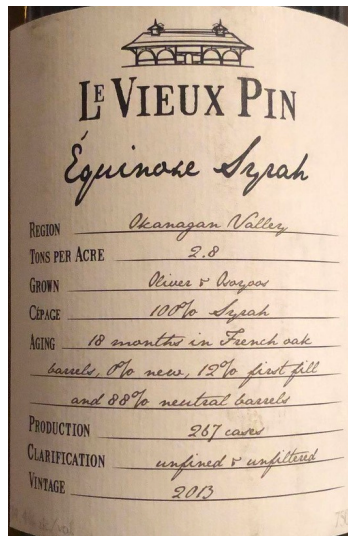 LE VIEUX PIN
Équinoxe Syrah
REGION Okanagan Valley
TONS PER ACRE 2.8
GROWN Oliver & Osoyoos
CÉPAGE 100% Syrah
AGING 18 months in French oak
barrels, 0% new, 12% first fill
and 88% neutral barrels
PRODUCTION 267 cases
CLARIFICATION unfined & unfiltered
VINTAGE 2013